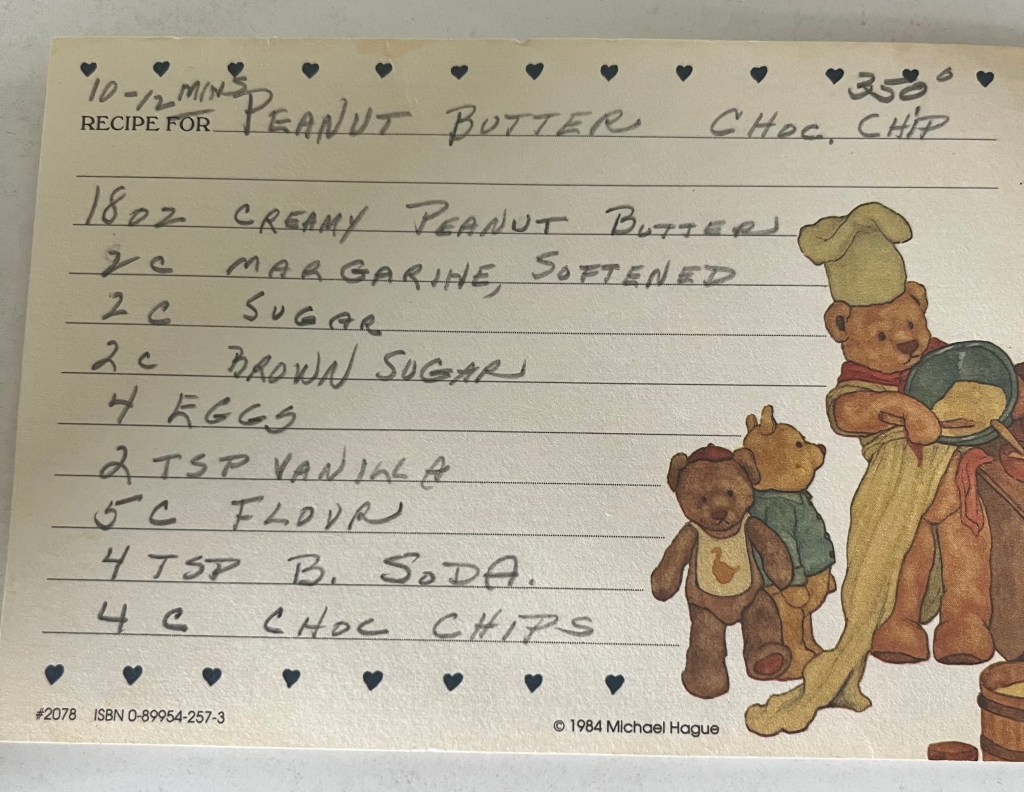 10-12 MINS 350°
RECIPE FOR PEANUT BUTTER CHOC. CHIP
18 OZ CREAMY PEANUT BUTTER
2 C MARGARINE, SOFTENED
2 C SUGAR
2 C BROWN SUGAR
4 EGGS
2 TSP VANILLA
5 C FLOUR
4 TSP B. SODA.
4 C CHOC CHIPS
#2078 ISBN 0-89954-257-3 © 1984 Michael Hague